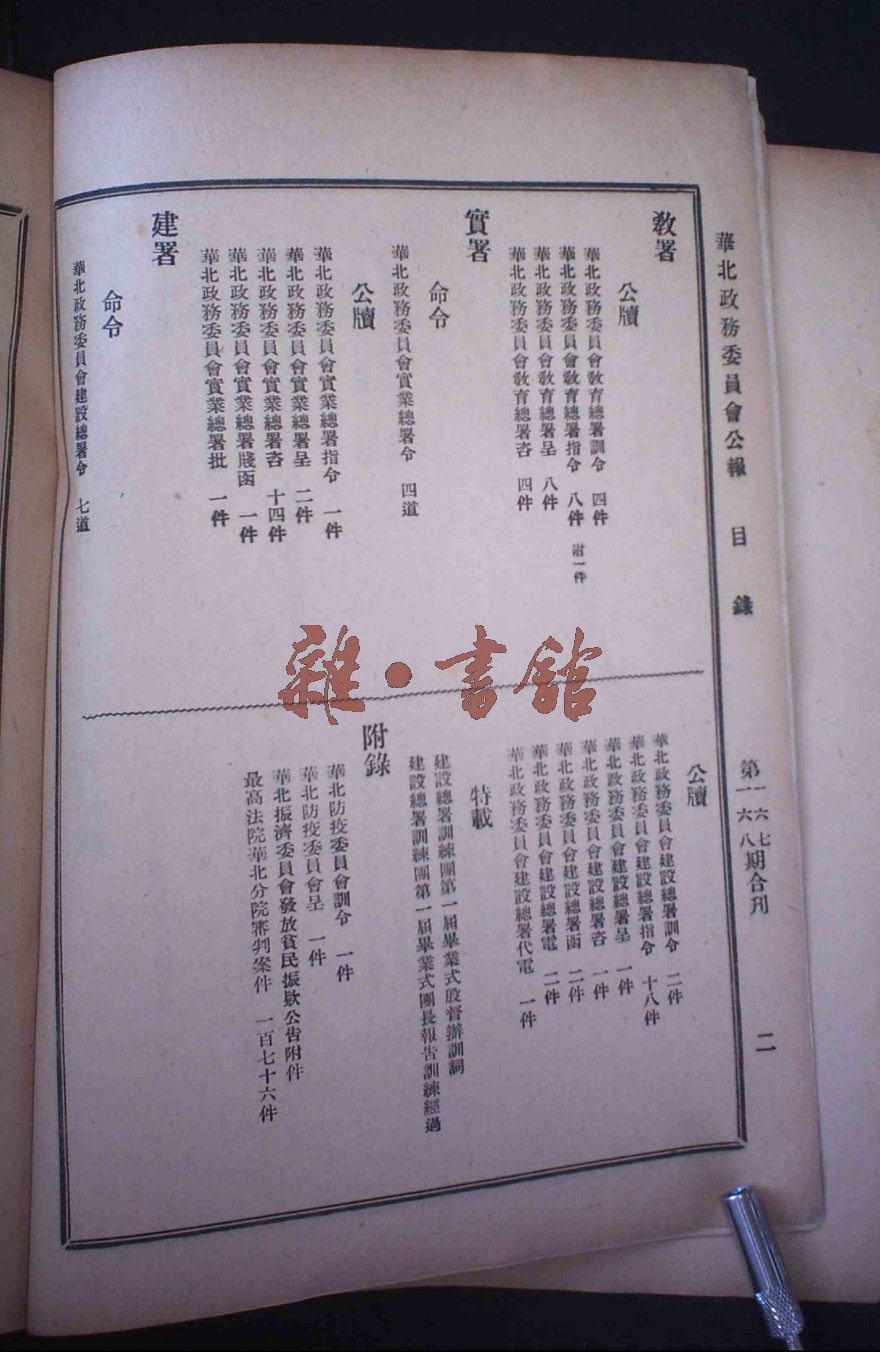 華北政務委員會公報 目錄 第一六七一六八期合刊 二
教署
公牘
華北政務委員會教育總署訓令 四件
華北政務委員會教育總署指令 八件 附一件
華北政務委員會教育總署呈 八件
華北政務委員會教育總署咨 四件
實署
命令
華北政務委員會實業總署令 四道
公牘
華北政務委員會實業總署指令 一件
華北政務委員會實業總署呈 二件
華北政務委員會實業總署咨 十四件
華北政務委員會實業總署牋函 一件
華北政務委員會實業總署批 一件
建署
命令
華北政務委員會建設總署令 七道
公牘
華北政務委員會建設總署訓令 二件
華北政務委員會建設總署指令 十八件
華北政務委員會建設總署呈 一件
華北政務委員會建設總署咨 一件
華北政務委員會建設總署函 二件
華北政務委員會建設總署電 二件
華北政務委員會建設總署代電 一件
特載
建設總署訓練團第一屆畢業式殷督辦訓詞
建設總署訓練團第一屆畢業式團長報告訓練經過
附錄
華北防疫委員會訓令 一件
華北防疫委員會呈 一件
華北振濟委員會發放貧民振欵公告附件
最高法院華北分院審判案件 一百七十六件
雜·書館